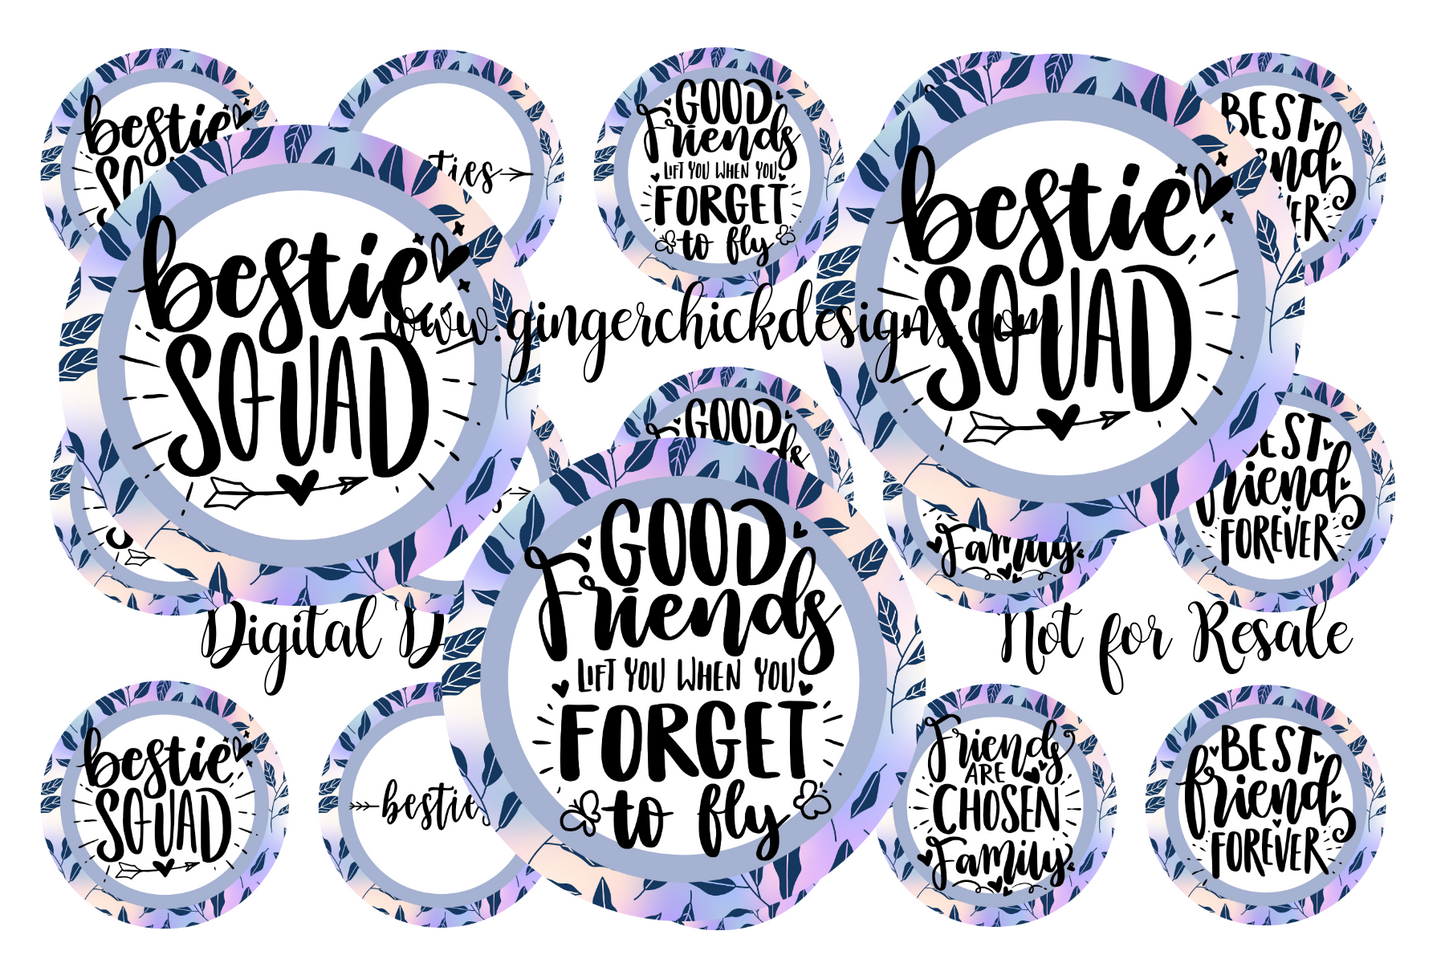 bestie
SQUAD
ties
GOOD
Friends
LIFT YOU WHEN YOU
FORGET
to fly
bestie
SQUAD
BEST
FOREVER
bestie
SQUAD
www.gingerchickdesigns.com
GOOD
BEST
friend
FOREVER
Family
GOOD
Friends
LIFT YOU WHEN YOU
FORGET
to fly
Digital D
Not for Resale
bestie
SQUAD
besties
Friends
ARE
CHOSEN
Family
BEST
friend
FOREVER